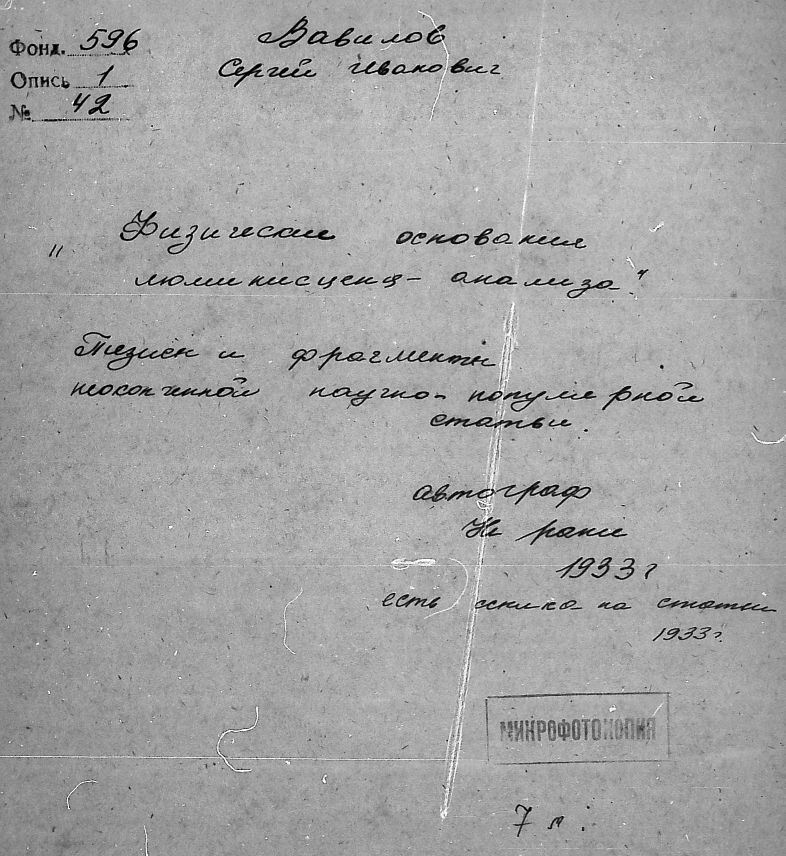 Фонд. 596
Опись 1
№ 42
Вавилов
Сергей Иванович
„Физические основания
люминисценц- анализа"
Тезисы и фрагменты
неоконченной научно-популярной
статьи.
автограф
Не ранее
1933 г
есть ссылка на статьи
1933 г.
МИКРОФОТОКОПИЯ
7 л.